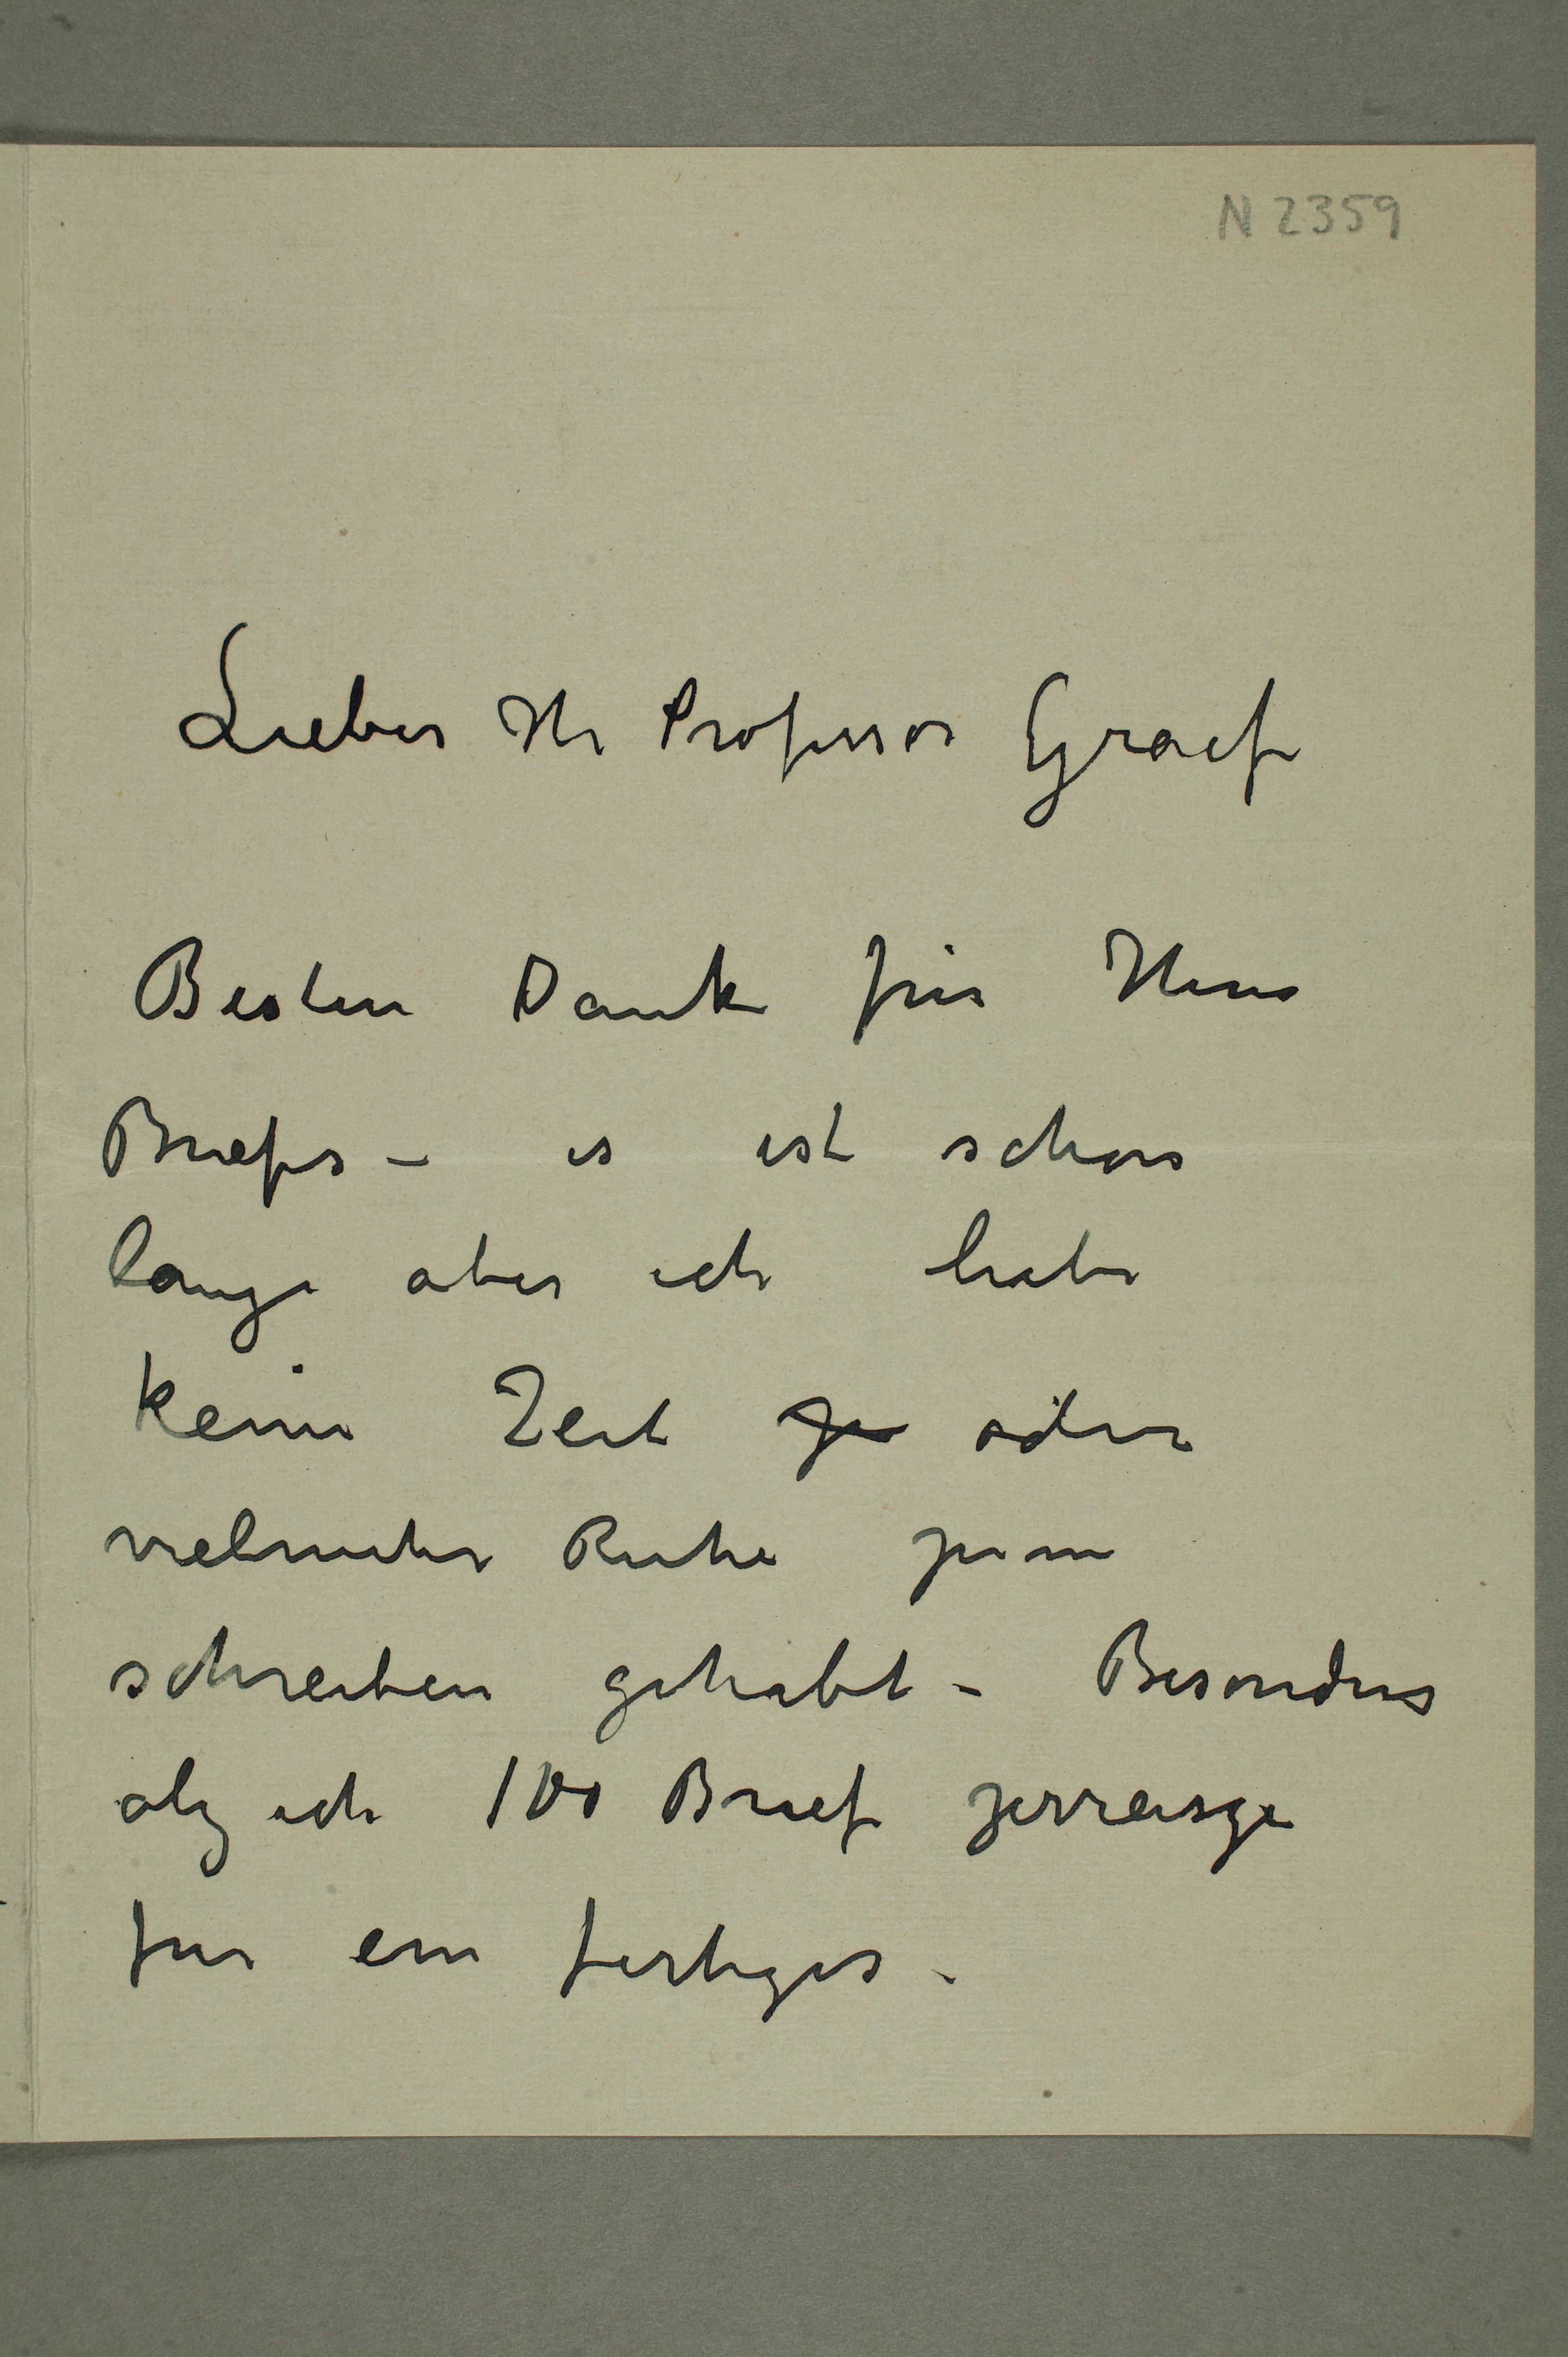 N 2359
Lieber Hr Professor Graef
Besten Dank für Ihren
Brief – es ist schon
lange aber ich habe
keine Zeit zu oder
vielmehr Ruhe zum
schreiben gehabt – Besonders
als ich 100 Brief zerreisze
für ein fertiges.